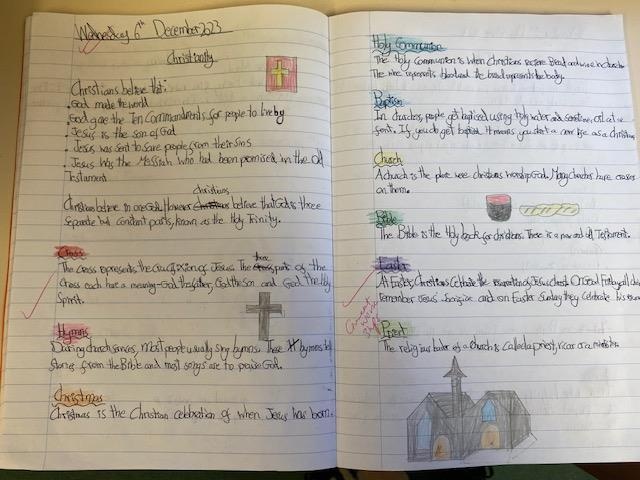 Wednesday 6th December 2023
Christianity
Christians believe that:
. God made the world
. God gave the Ten Commandments for people to live by
. Jesus is the son of God
. Jesus was sent to save people from their sins
. Jesus was the Messiah who had been promised in the Old
Testament.
christians
Christians believe in one God. However christians believe that God is three
separate but constant parts, known as the Holy Trinity.
Cross
The cross represents the crucifixion of Jesus. The three parts of the
Cross each have a meaning - God the father, God the son and God the Holy
Spirit.
Hymns
During church services, most people usually sing hymns. These hymns tell
stories from the Bible and most songs are to praise God.
Christmas
Christmas is the Christian celebration of when Jesus was born.
Holy Communion
The Holy Communion is when Christians receive Bread and wine in church
The wine represents blood and the bread represents the body.
Baptism
In churches, people get baptised using Holy water and sometime, oil at a
font. If you do get baptised it means you start a new life as a christian
Church
A church is the place were christians worship God. Many churches have crosses
on them.
Bible
The Bible is the Holy book for christians. There is a new and old Testament.
Easter
At Easter, Christians celebrate the resurrection of Jesus christ. On Good Friday all
remember Jesus' sacrifice and on Easter Sunday they celebrate his
Priest
The religious leader of a church is called a priest, vicar or a minister.